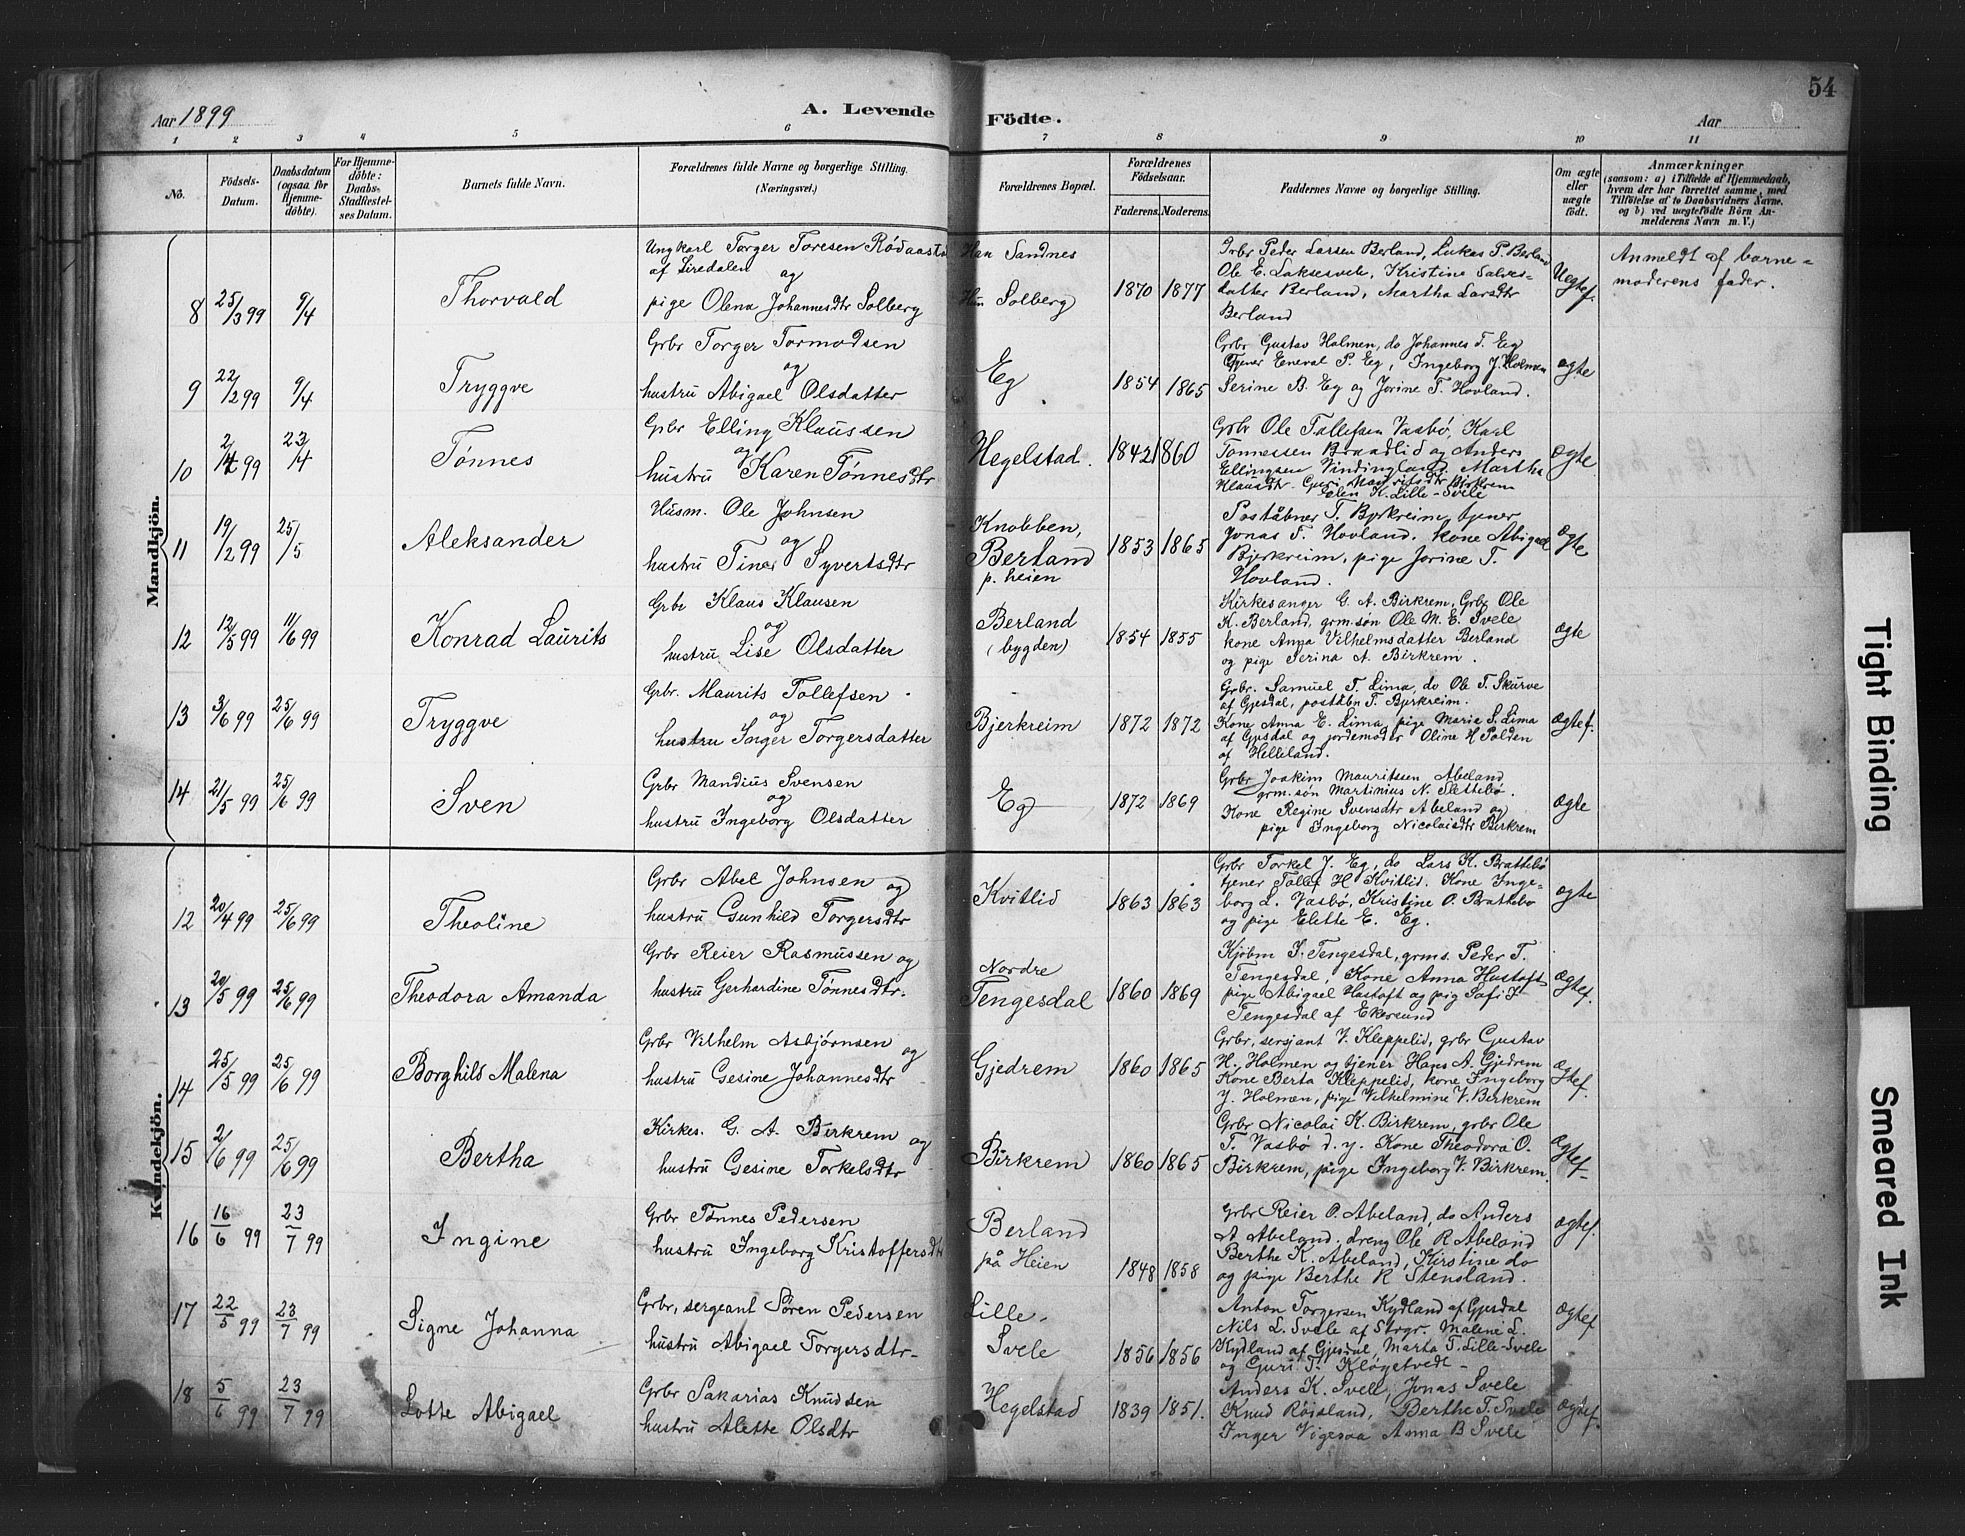 54
Aar 1899
A. Levende Födte.
Aar
1 2 3 4 5 6 7 8 9 10 11
No.
Födsels-Datum.
Daabsdatum (ogsaa for Hjemme-döbte).
For Hjemme-döbte: Daabs-Stadfæstel-ses Datum.
Barnets fulde Navn.
Forældrenes fulde Navne og borgerlige Stilling. (Næringsvei.)
Forældrenes Bopæl.
Forældrenes Födselsaar.
Faderens. Moderens.
Faddernes Navne og borgerlige Stilling.
Om ægte eller uægte födt.
Anmærkninger
(saasom: a) i Tilfælde af Hjemmedaab, hvem der har forrettet samme, med Tilföielse af to Daabsvidners Navne. og b) ved uægtefödte Börn An-melderens Navn m. V.)
Mandkjön.
8 25/3 99 9/4 Thorvald
Ungkarl Torger Toresen
af Siredalen og
pige Olena Johannesdtr Solberg
Han Sandnes
Hun Solberg
1870 1877
Grbr Peder Larsen Berland, Lukas P. Berland
Ole E. Laksesvele, Kristine Salves-
datter Berland, Martha Larsdtr
Berland
Uegtef.
Anmeldt af barne-
moderens fader.
9 22/2 99 9/4 Tryggve
Grbr Torger Tormodsen
og
hustru Abigael Olsdatter
Eg
1854 1865
Grbr Gustav Holmen, do Johannes T. Eeg
Tjener Eneval P. Eg, Ingeborg J. Holmen
Serine B. Eg og Jorine T. Hovland.
ægte
10 2/4 99 23/4 Tønnes
Grbr Elling Klaussen
og
hustru Karen Tønnesdtr
Hegelstad.
1842 1860
Grbr Ole Tollefsen Vasbø, Karl
Tønnessen Braadlid og Anders
Ellingsen Vindingland. Martha
Klausdtr. Guri Mauritsdtr Birkrem
Elen K. Lille-Svele
ægte
11 19/2 99 25/5 Aleksander
Husm. Ole Johnsen
og
hustru Tine Syvertsdtr
Knobben,
Berland
p. heien
1853 1865
Poståbner T. Bjerkreim, tjener
Jonas T. Hovland. kone Abigael
Bjerkreim, pige Jorine T.
Hovland.
ægte
12 12/5 99 11/6 99 Konrad Laurits
Grbr Klaus Klausen
og
hustru Lise Olsdatter
Berland
(bygden)
1854 1855
Kirkesanger G. A. Birkrem, Grbr Ole
K. Berland, grm.søn Ole M. E. Svele
kone Anna Vilhelmsdatter Berland
og pige Serina A. Birkrem.
ægte
13 3/6 99 25/6 99 Tryggve
Grbr. Maurits Tollefsen
og
hustru Inger Torgersdatter
Bjerkreim
1872 1872
Grbr. Samuel T. Lima, do Ole T. Skurve
af Gjesdal, poståbn T. Bjerkreim.
Kone Anna E. Lima, pige Maria S. Lima
af Gjesdal og jordemoder Oline H Polden
af Helleland.
ægtef.
14 21/5 99 25/6 99 Sven
Grbr Mandius Svensen
og
hustru Ingeborg Olsdatter
Eg
1872 1869
Grbr Joakim Mauritssen Abeland
grm.søn Martinius N. Slettebø.
Kone Regine Svensdtr Abeland og
pige Ingeborg Nicolaisdtr Birkrem
ægte
Kvindekjön.
12 20/4 99 25/6 99 Theoline
Grbr Abel Johnsen og
hustru Gunhild Torgersdtr
Kvitlid
1863 1863
Grbr Torkel J. Eg, do Lars K. Brattebø
tjener Tollef H Kvitlid. Kone Inge-
borg L. Vasbø, Kristine O. Brattebø
og pige Elette E. Eg.
ægte
13 20/5 99 25/6 99 Theodora Amanda
Grbr Reier Rasmussen og
hustru Gerhardine Tønnesdtr.
Nordre
Tengesdal
1860 1869
Kjøbm S. Tengesdal, grms. Peder T.
Tengesdal, Kone Anna Hustoft
pige Abigael Hastoft og pig Sofi
Tengesdal af Ekersund
ægtef.
14 25/5 99 25/6 99 Borghild Malena
Grbr Vilhelm Asbjørnsen og
hustru Gesine Johannesdtr
Gjedrem
1860 1865
Grbr, sersjant V. Kleppelid, grbr Gustav
H. Holmen og tjener Hans A. Gjedrem
Kone Berta Kleppelid, kone Ingeborg
J. Holmen, pige Vilhelmine V. Birkrem
Ægtef.
15 2/6 99 25/6 99 Bertha
Kirkes. G. A. Birkrem og
hustru Gesine Torkelsdtr
Birkrem
1860 1865
Grbr Nicolai K. Birkrem, grbr Ole
T. Vasbø d. y. Kone Theodora O.
Birkrem, pige Ingeborg V. Birkrem.
Ægtef.
16 16/6 99 23/7 99 Ingine
Grbr Tønnes Pedersen
hustru Ingeborg Kristoffersdtr
Berland
på Heien
1848 1858
Grbr Reier O. Abeland, do Anders
A Abeland. dreng Ole R Abeland
Berthe K. Abeland, Kirstine do
og pige Berthe R Stensland.
ægtef.
17 22/5 99 23/7 99 Signe Johanna
Grbr, sergeant Søren Pedersen
hustru Abigael Torgersdtr
Lille-
Svele
1856 1856
Anton Torgersen Kydland af Gjesdal
Nils L. Svele af Strgr. Malene L.
Kydland af Gjesdal, Marta T. Lille-Svele
og Guri T. Kløgetvedt
ægtef
18 5/6 99 23/7 99 Lotte Abigael
Grbr Sakarias Knudsen
hustru Alette Olsdtr
Hegelstad
1839 1851.
Anders K. Svele, Jonas Svele
Knud Røisland, Berthe T. Svele
Inger Vigesaa Anna B Svele
ægtef.
Tight Binding
Smeared Ink